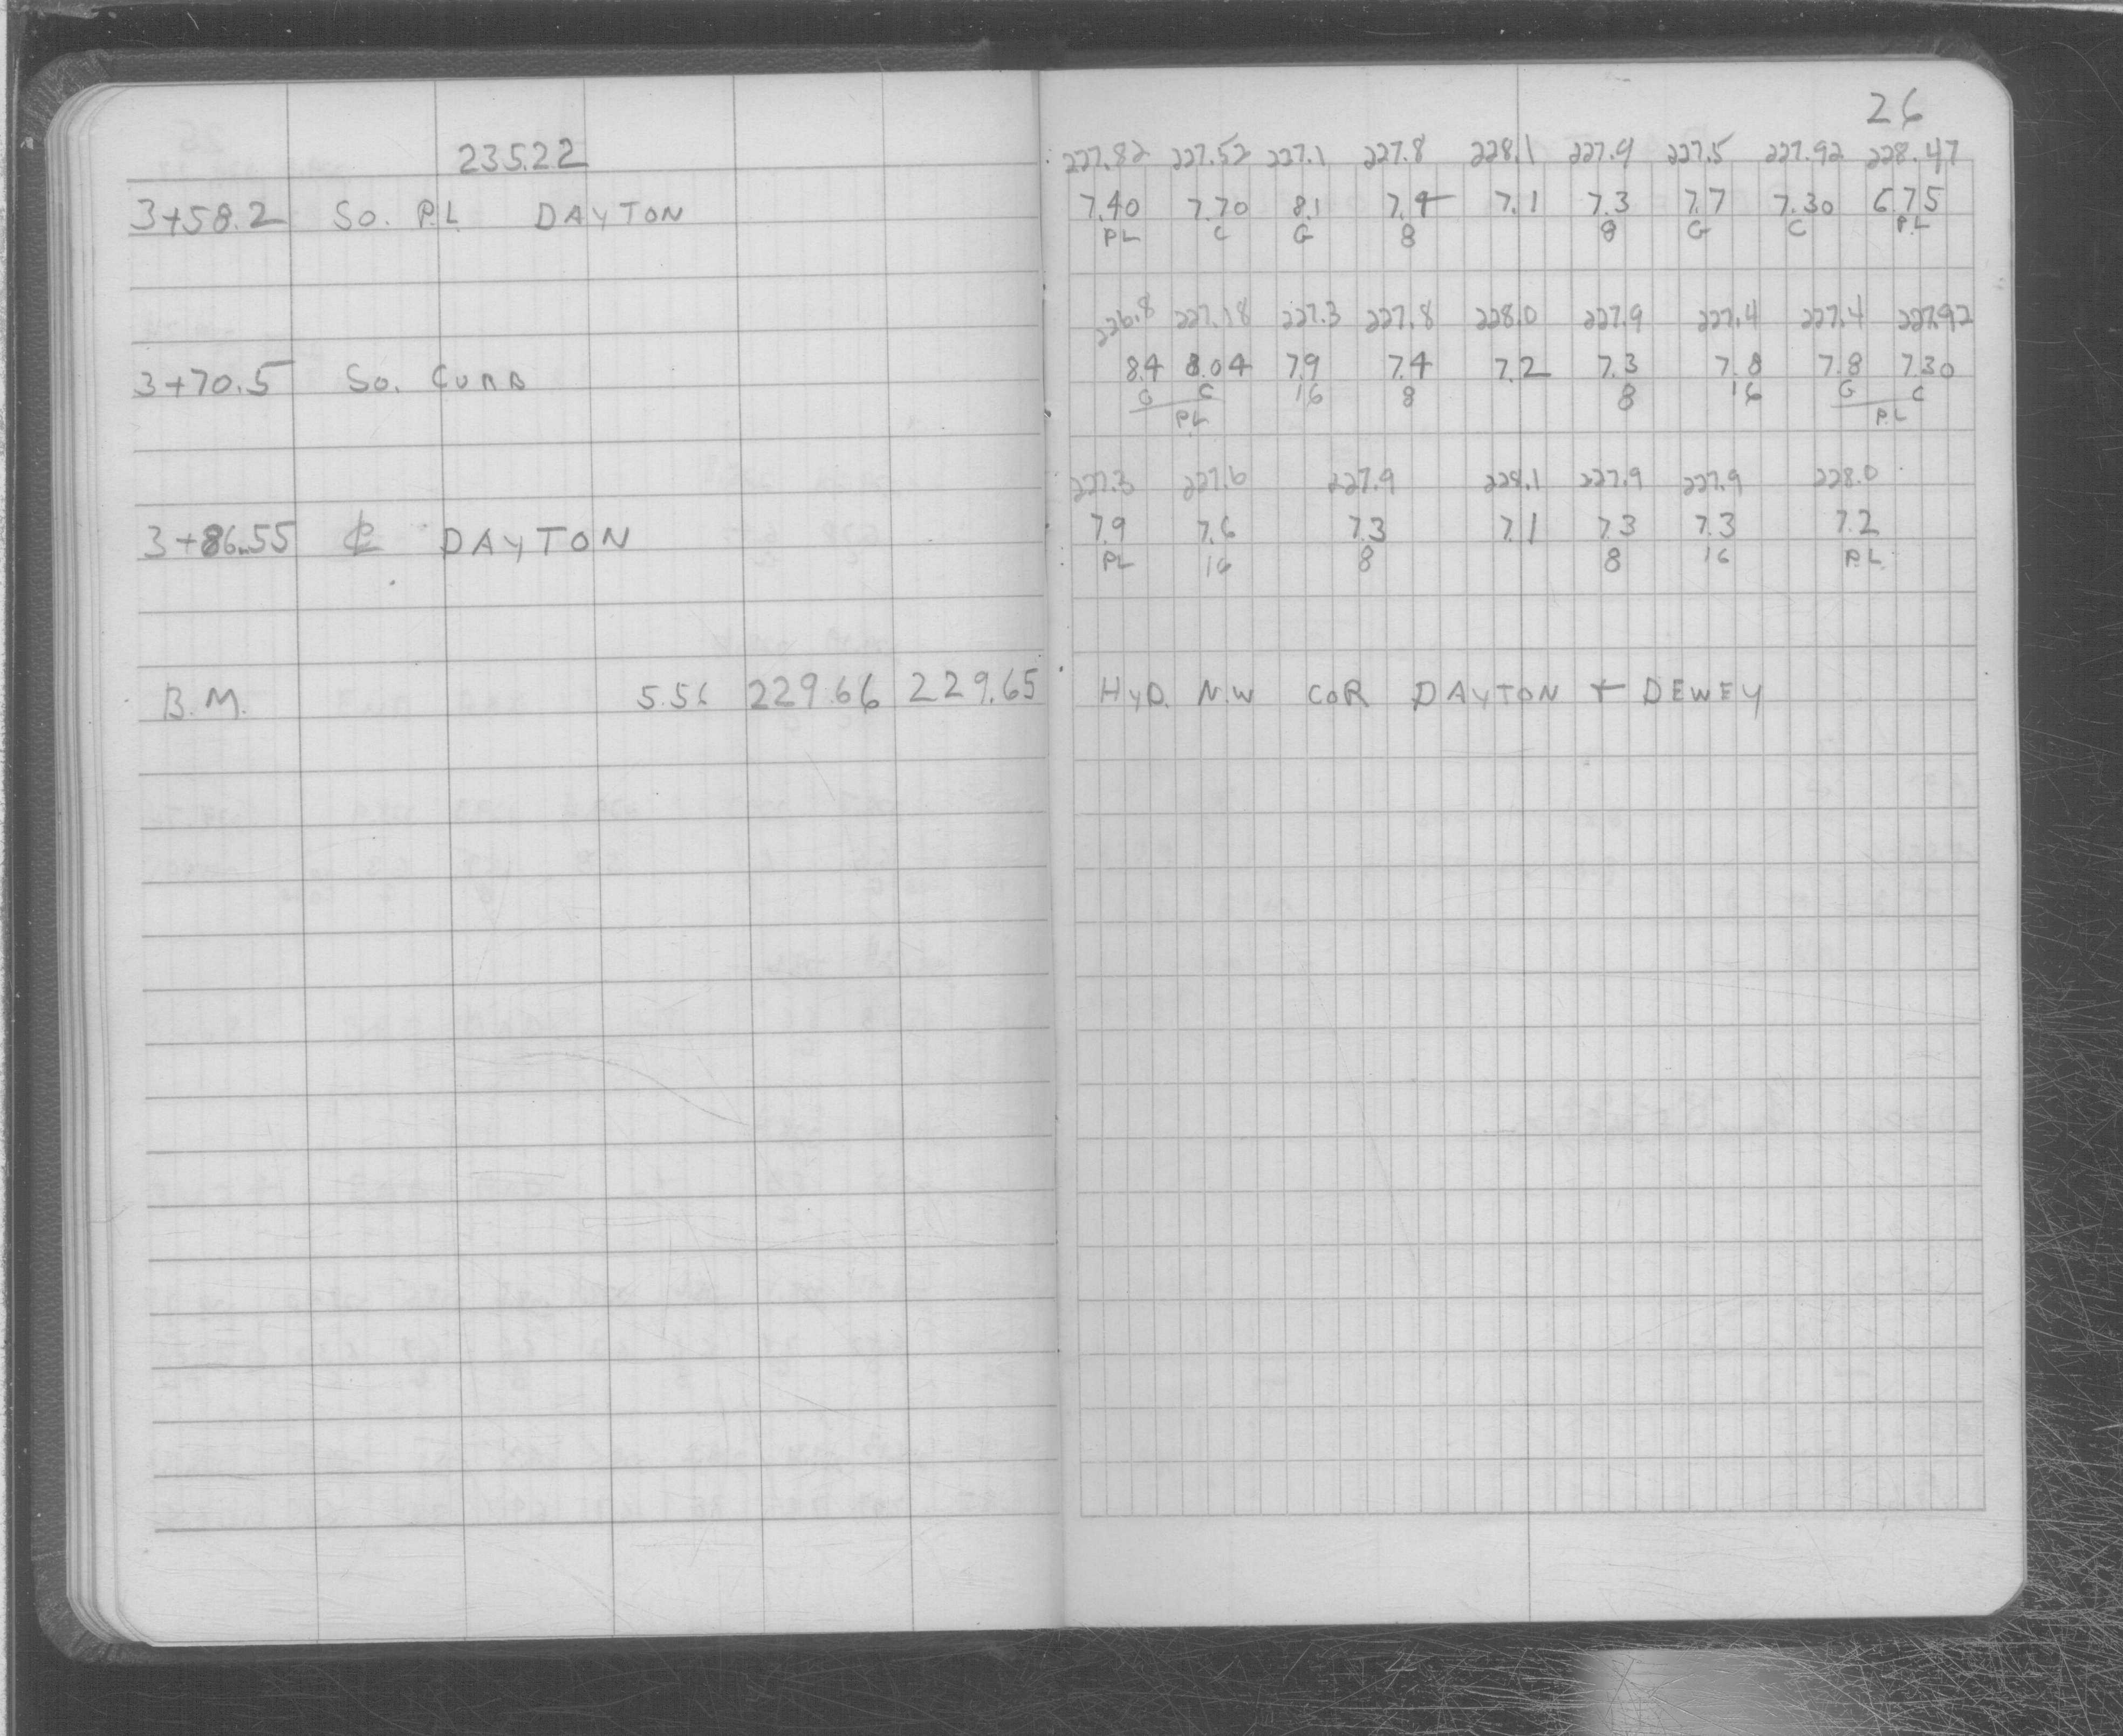 26
235.22
227.82 227.52 227.1 227.8 228.1 227.9 227.5 227.92 228.47
3+58.2 So. P.L DAYTON
7.40 7.70 8.1 7.4 7.1 7.3 7.7 7.30 6.75
PL C G 8 8 G C P.L
226.8 227.18 227.3 227.8 228.0 227.9 227.4 227.4 227.92
3+70.5 So. CURB
8.4 8.04 7.9 7.4 7.2 7.3 7.8 7.8 7.30
G C 16 8 8 16 G C
P.L P.L
227.3 227.6 227.9 228.1 227.9 227.9 228.0
3+86.55 ℄ DAYTON
7.9 7.6 7.3 7.1 7.3 7.3 7.2
PL 16 8 8 16 P.L.
B.M. 5.56 229.66 229.65 HYD. N.W COR DAYTON + DEWEY